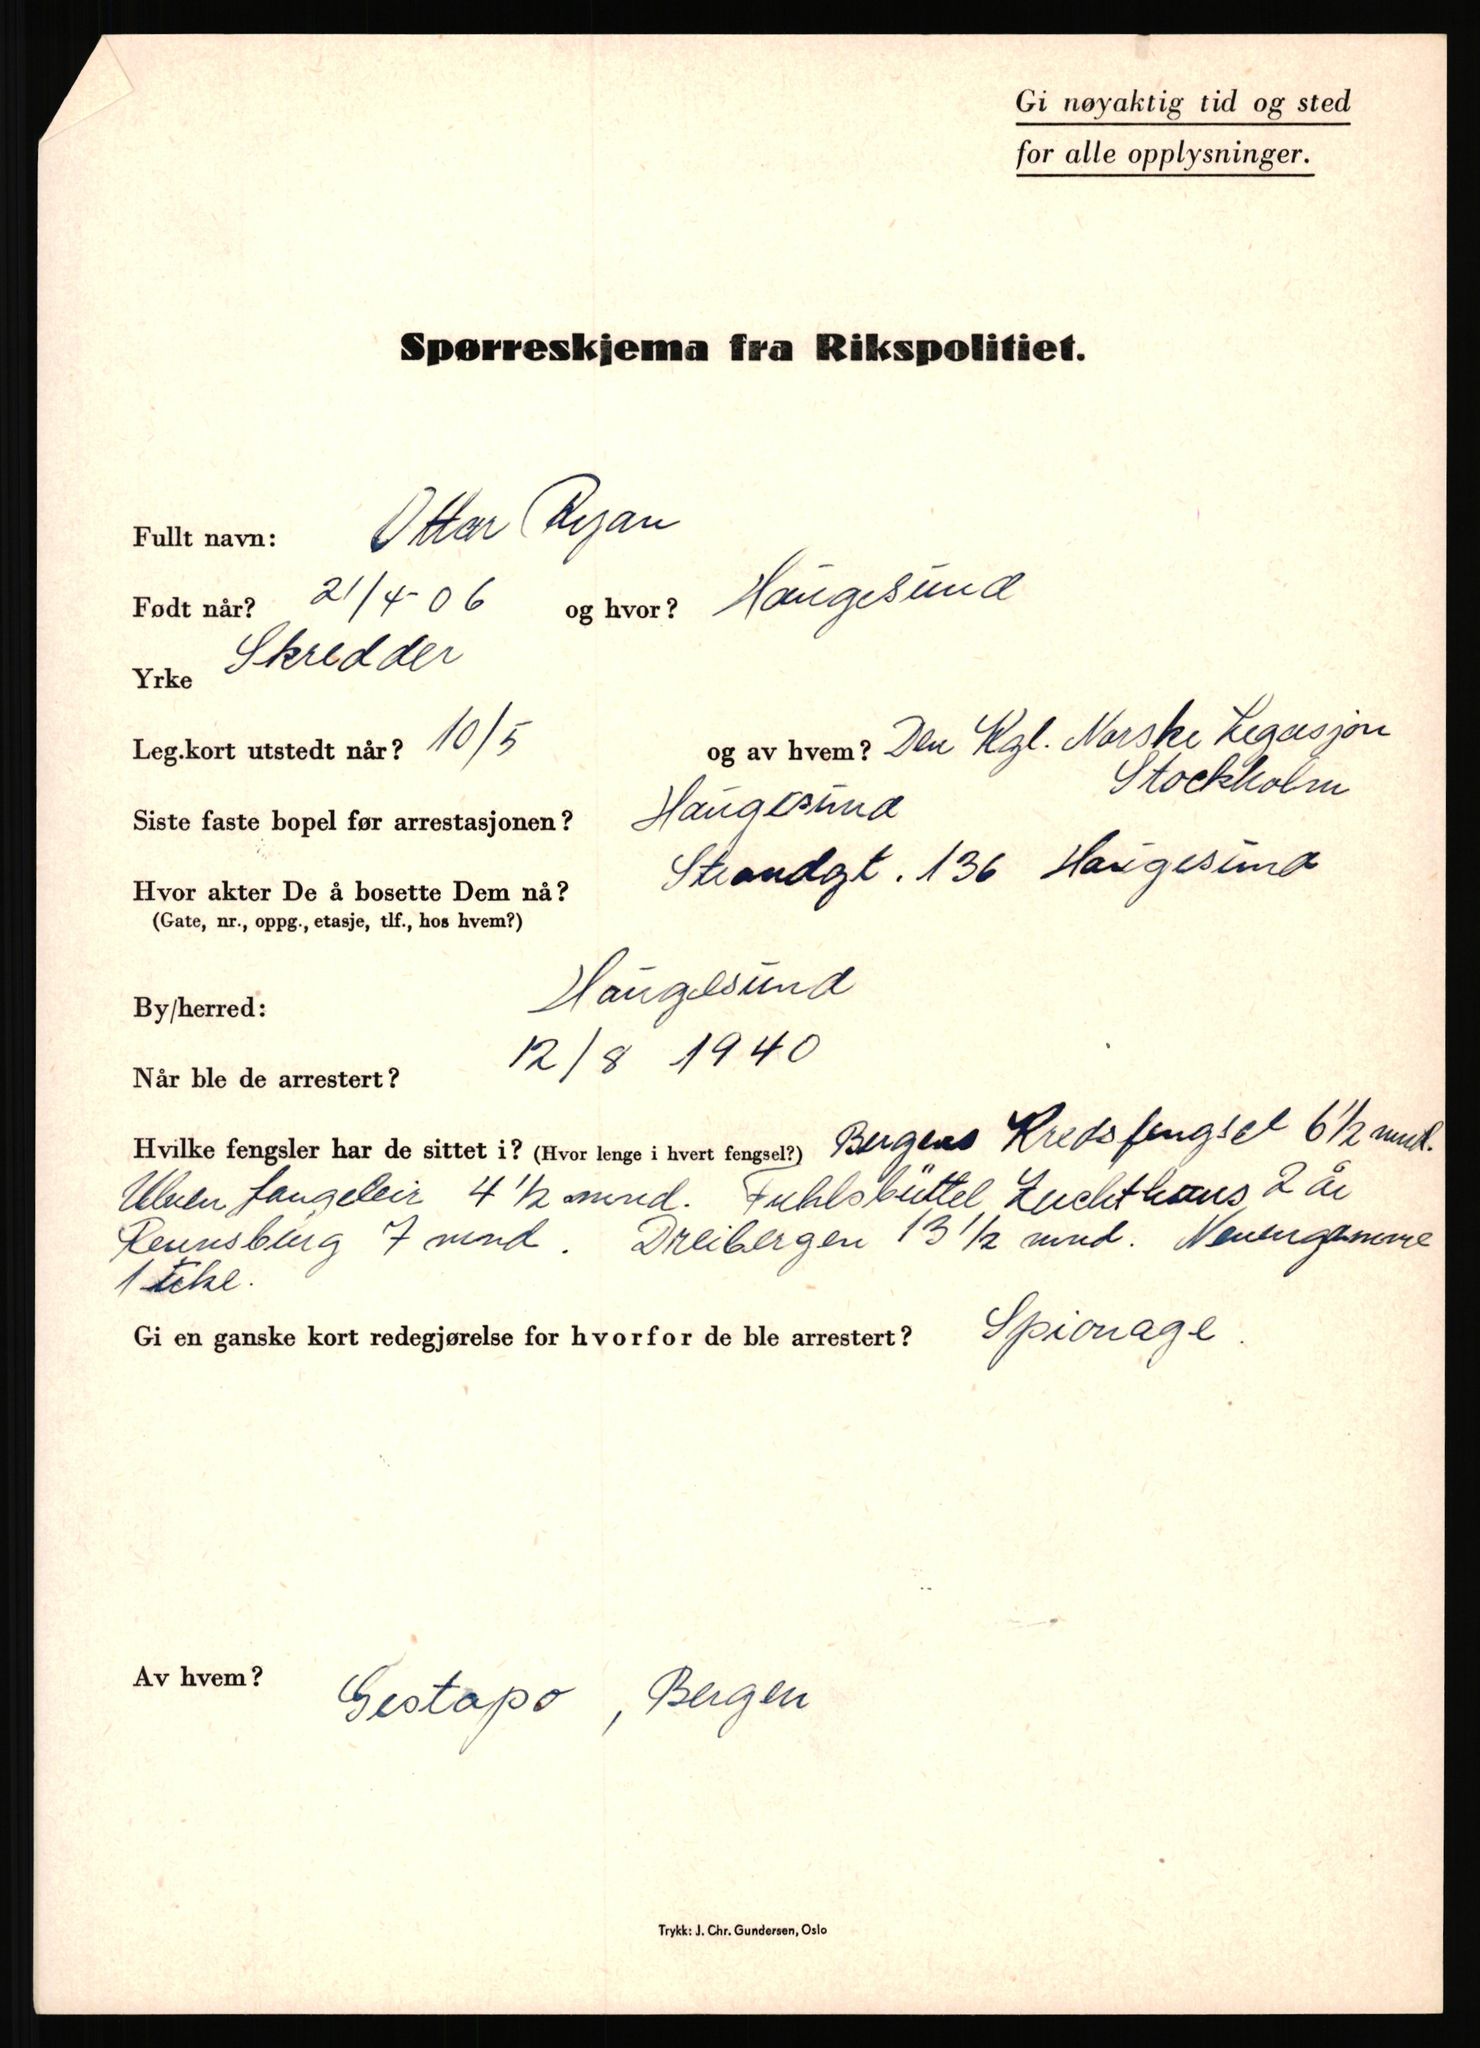 Gi nøyaktig tid og sted
for alle opplysninger.
Spørreskjema fra Rikspolitiet.
Fullt navn: Ottar Ryan
Født når? 21/4-06 og hvor? Haugesund
Yrke Skredder
Leg.kort utstedt når? 10/5 og av hvem? Den Kgl. Norske Legasjon
Stockholm
Siste faste bopel før arrestasjonen? Haugesund
Hvor akter De å bosette Dem nå? Strandgt. 136 Haugesund
(Gate, nr., oppg., etasje, tlf., hos hvem?)
By/herred: Haugesund
Når ble de arrestert? 12/8 1940
Hvilke fengsler har de sittet i? (Hvor lenge i hvert fengsel?) Bergens Kredsfengsel 6 1/2 mnd.
Ulven fangeleir 4 1/2 mnd. Fuhlsbüttel Zuchthaus 2 år
Rennsburg 7 mnd. Dreibergen 13 1/2 mnd. Neuengamme
1 uke.
Gi en ganske kort redegjørelse for hvorfor de ble arrestert? Spionage.
Av hvem? Gestapo, Bergen
Trykk: J. Chr. Gundersen, Oslo